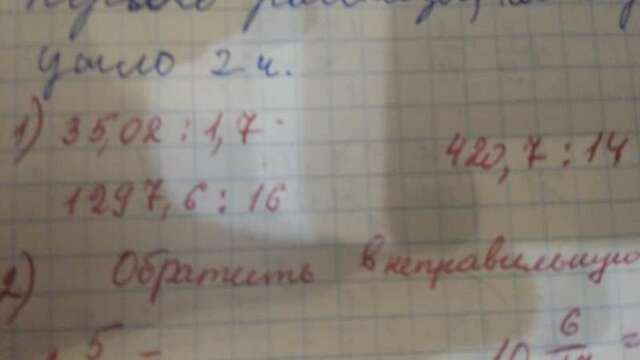 ушло 2 ч.
1) 35,02 : 1,7 420,7 : 14
1297,6 : 16
2) Обратить в неправильную
5
6
10 =